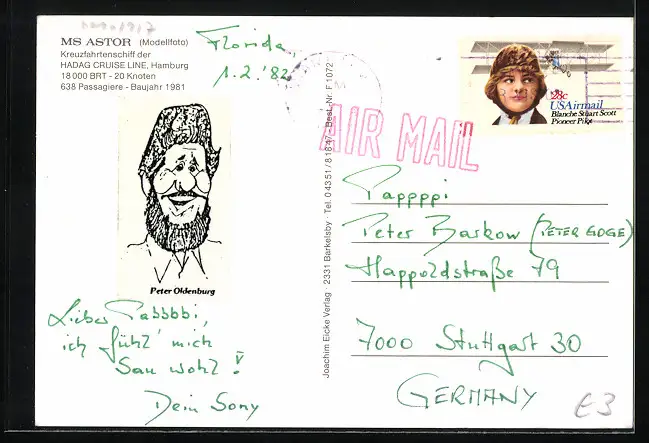 MS ASTOR (Modellfoto)
Kreuzfahrtenschiff der
HADAG CRUISE LINE, Hamburg
18 000 BRT - 20 Knoten
638 Passagiere - Baujahr 1981
Florida,
1.2.'82
28c
USAirmail
Blanche Stuart Scott
Pioneer Pilot
AIR MAIL
Peter Oldenburg
Lieber Pabbbbi,
ich fühl' mich
Sau wohl!
Dein Sony
Joachim Eicke Verlag · 2331 Barkelsby · Tel. 0 43 51 / 8 18 47 · Best.-Nr. F 1072
Pappppi
Peter Barkow (PETER GOGE)
Happoldstraße 79
7000 Stuttgart 30
GERMANY
E3